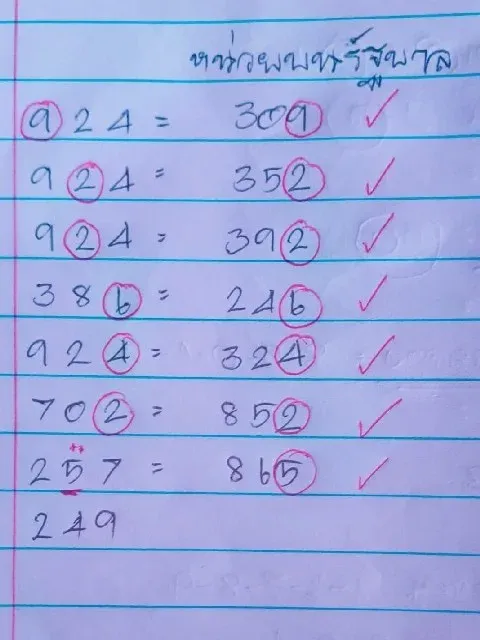 หน่วยบนรัฐบาล
924 = 309 ✓
924 = 352 ✓
924 = 392 ✓
386 = 246 ✓
924 = 324 ✓
702 = 852 ✓
257 = 865 ✓
249